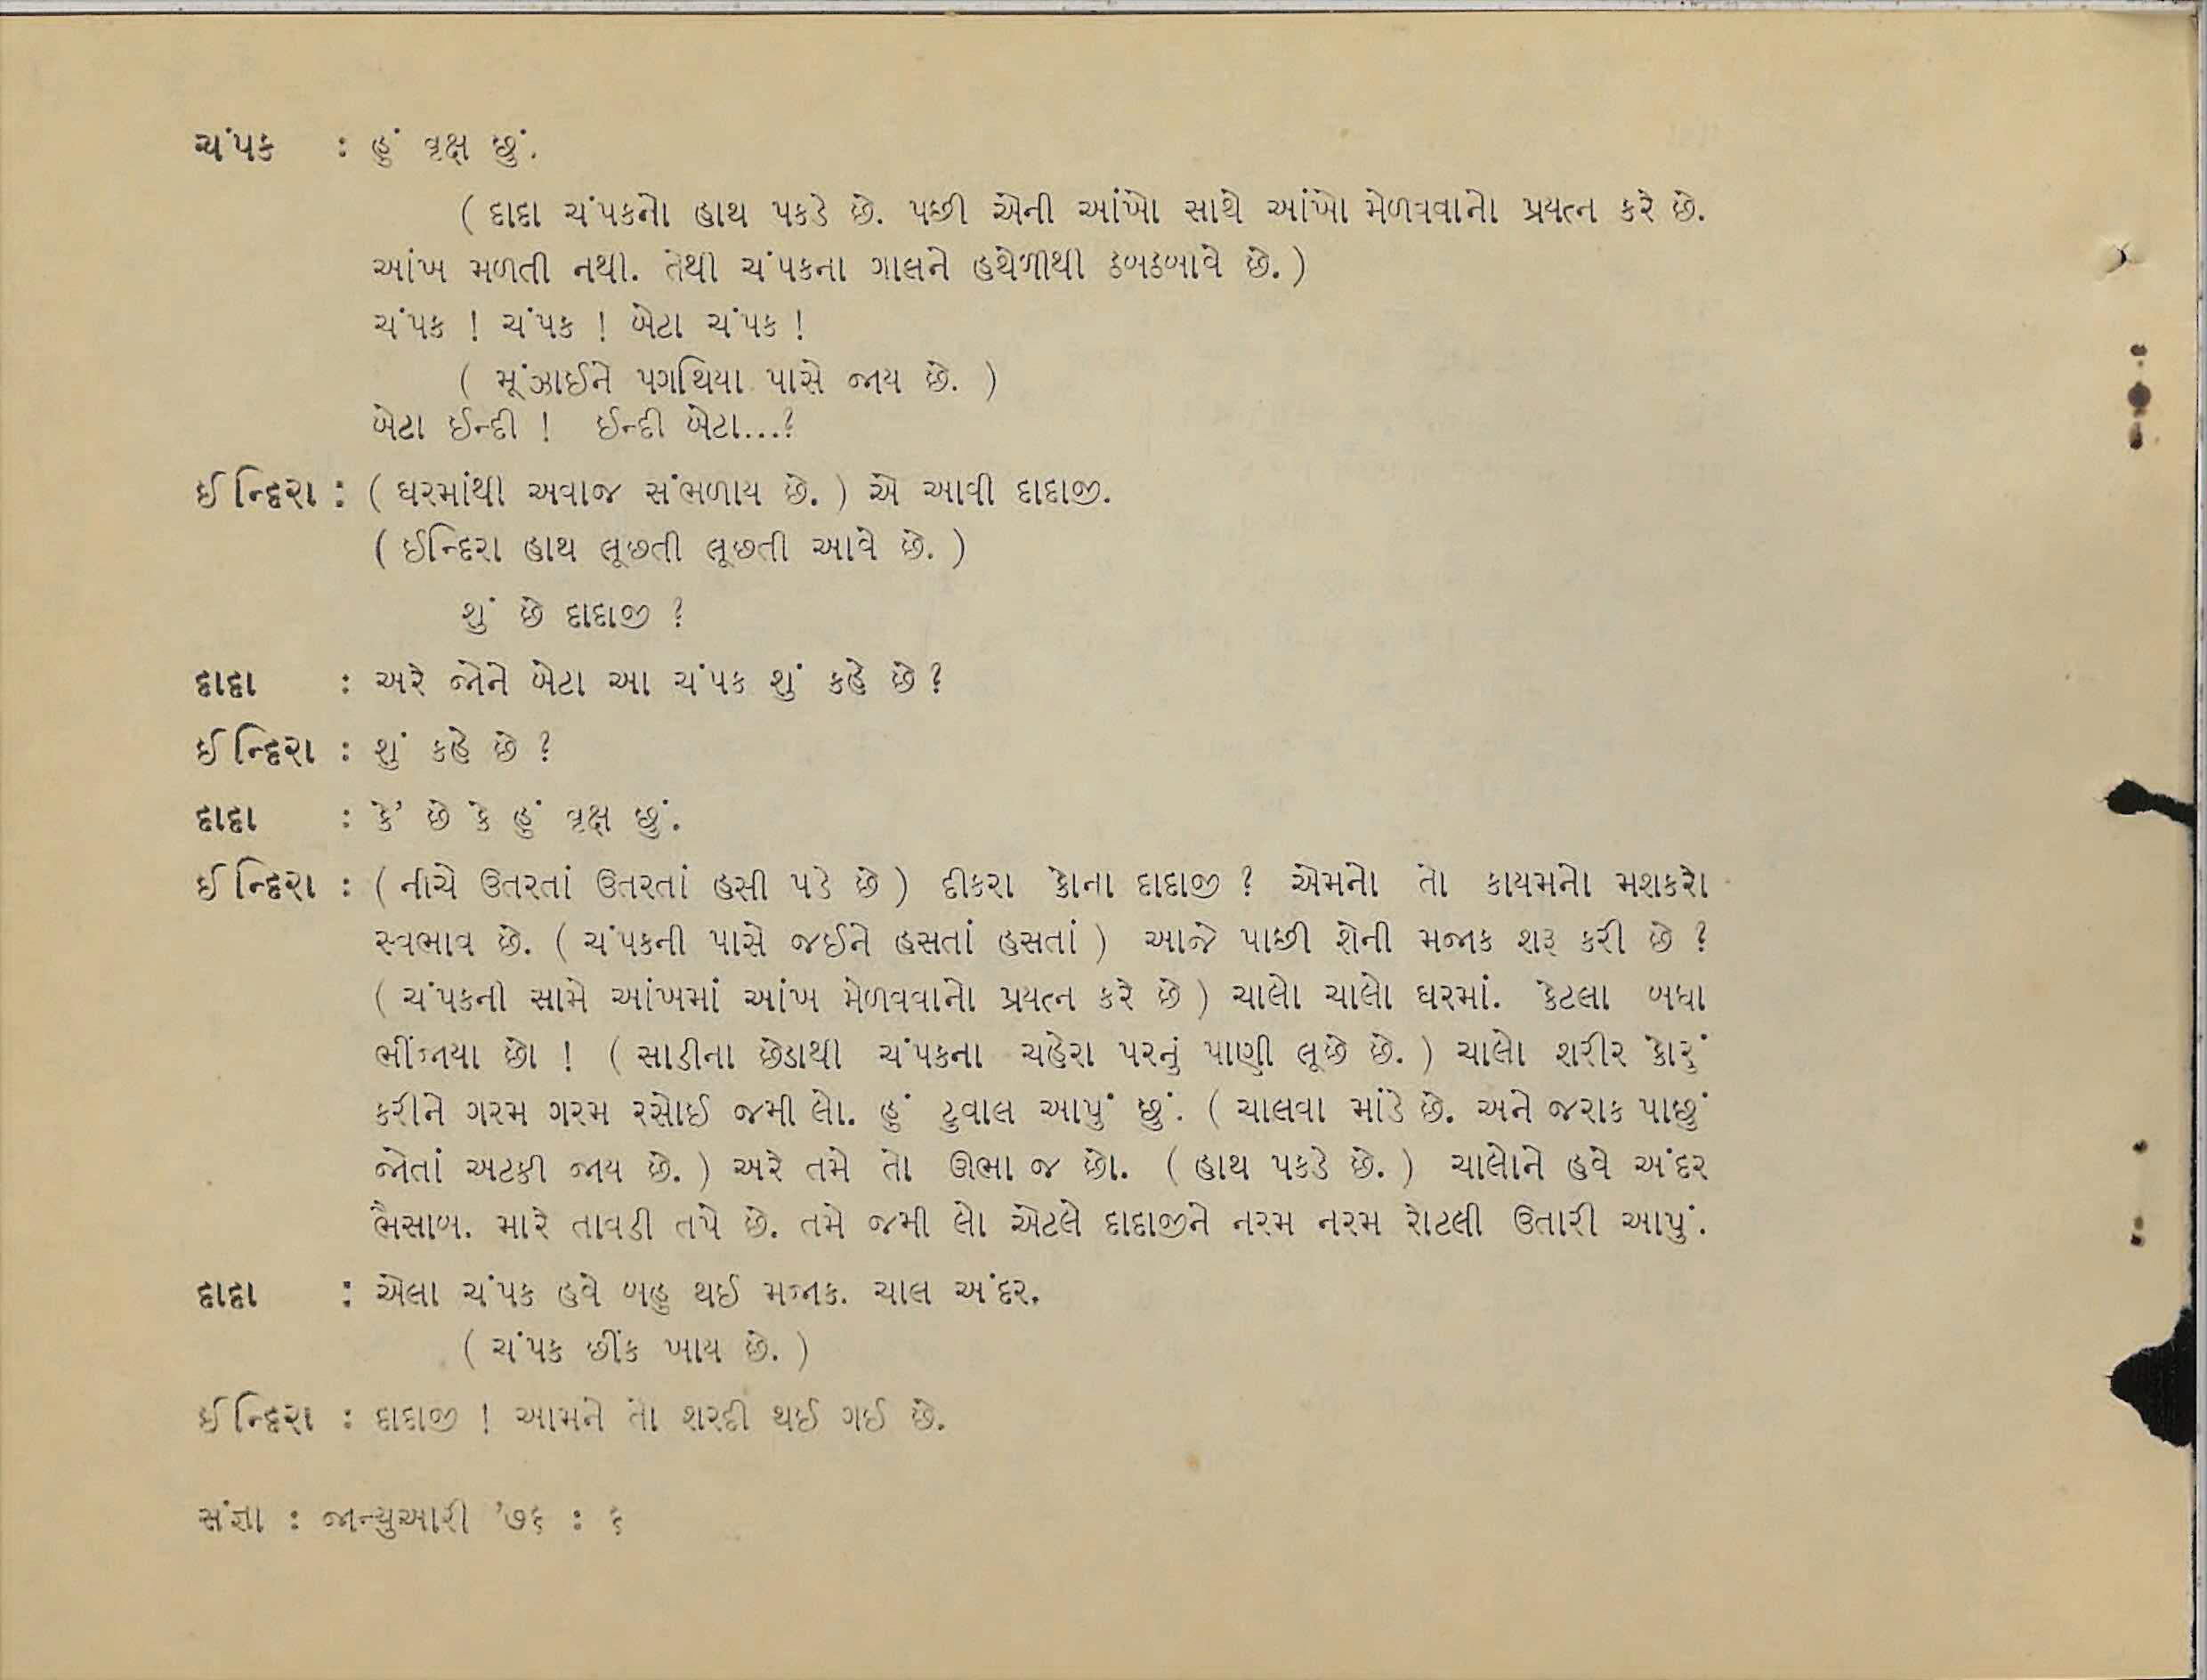 ચંપક : હું વૃક્ષ છું.
( દાદા ચંપકનો હાથ પકડે છે. પછી એની આંખો સાથે આંખો મેળવવાનો પ્રયત્ન કરે છે.
આંખ મળતી નથી. તેથી ચંપકના ગાલને હથેળીથી ઠબઠબાવે છે. )
ચંપક ! ચંપક ! બેટા ચંપક !
( મૂંઝાઈને પગથિયા પાસે જાય છે. )
બેટા ઈન્દી ! ઈન્દી બેટા...?
ઈન્દિરા : ( ઘરમાંથી અવાજ સંભળાય છે. ) એ આવી દાદાજી.
( ઈન્દિરા હાથ લૂછતી લૂછતી આવે છે. )
શું છે દાદાજી ?
દાદા : અરે જોને બેટા આ ચંપક શું કહે છે ?
ઈન્દિરા : શું કહે છે ?
દાદા : કે’ છે કે હું વૃક્ષ છું.
ઈન્દિરા : ( નીચે ઉતરતાં ઉતરતાં હસી પડે છે ) દીકરા કોના દાદાજી ? એમનો તો કાયમનો મશકરો
સ્વભાવ છે. ( ચંપકની પાસે જઈને હસતાં હસતાં ) આજે પાછી શેની મજાક શરૂ કરી છે ?
( ચંપકની સામે આંખમાં આંખ મેળવવાનો પ્રયત્ન કરે છે ) ચાલો ચાલો ઘરમાં. કેટલા બધા
ભીંજાયા છો ! ( સાડીના છેડાથી ચંપકના ચહેરા પરનું પાણી લૂછે છે. ) ચાલો શરીર કોરું
કરીને ગરમ ગરમ રસોઈ જમી લો. હું ટુવાલ આપું છું. ( ચાલવા માંડે છે. અને જરાક પાછું
જોતાં અટકી જાય છે. ) અરે તમે તો ઊભા જ છો. ( હાથ પકડે છે. ) ચાલોને હવે અંદર
ભૈસાબ. મારે તાવડી તપે છે. તમે જમી લો એટલે દાદાજીને નરમ નરમ રોટલી ઉતારી આપું.
દાદા : એલા ચંપક હવે બહુ થઈ મજાક. ચાલ અંદર.
( ચંપક છીંક ખાય છે. )
ઈન્દિરા : દાદાજી ! આમને તો શરદી થઈ ગઈ છે.
સંજ્ઞા : જાન્યુઆરી ’૭૬ : ૬